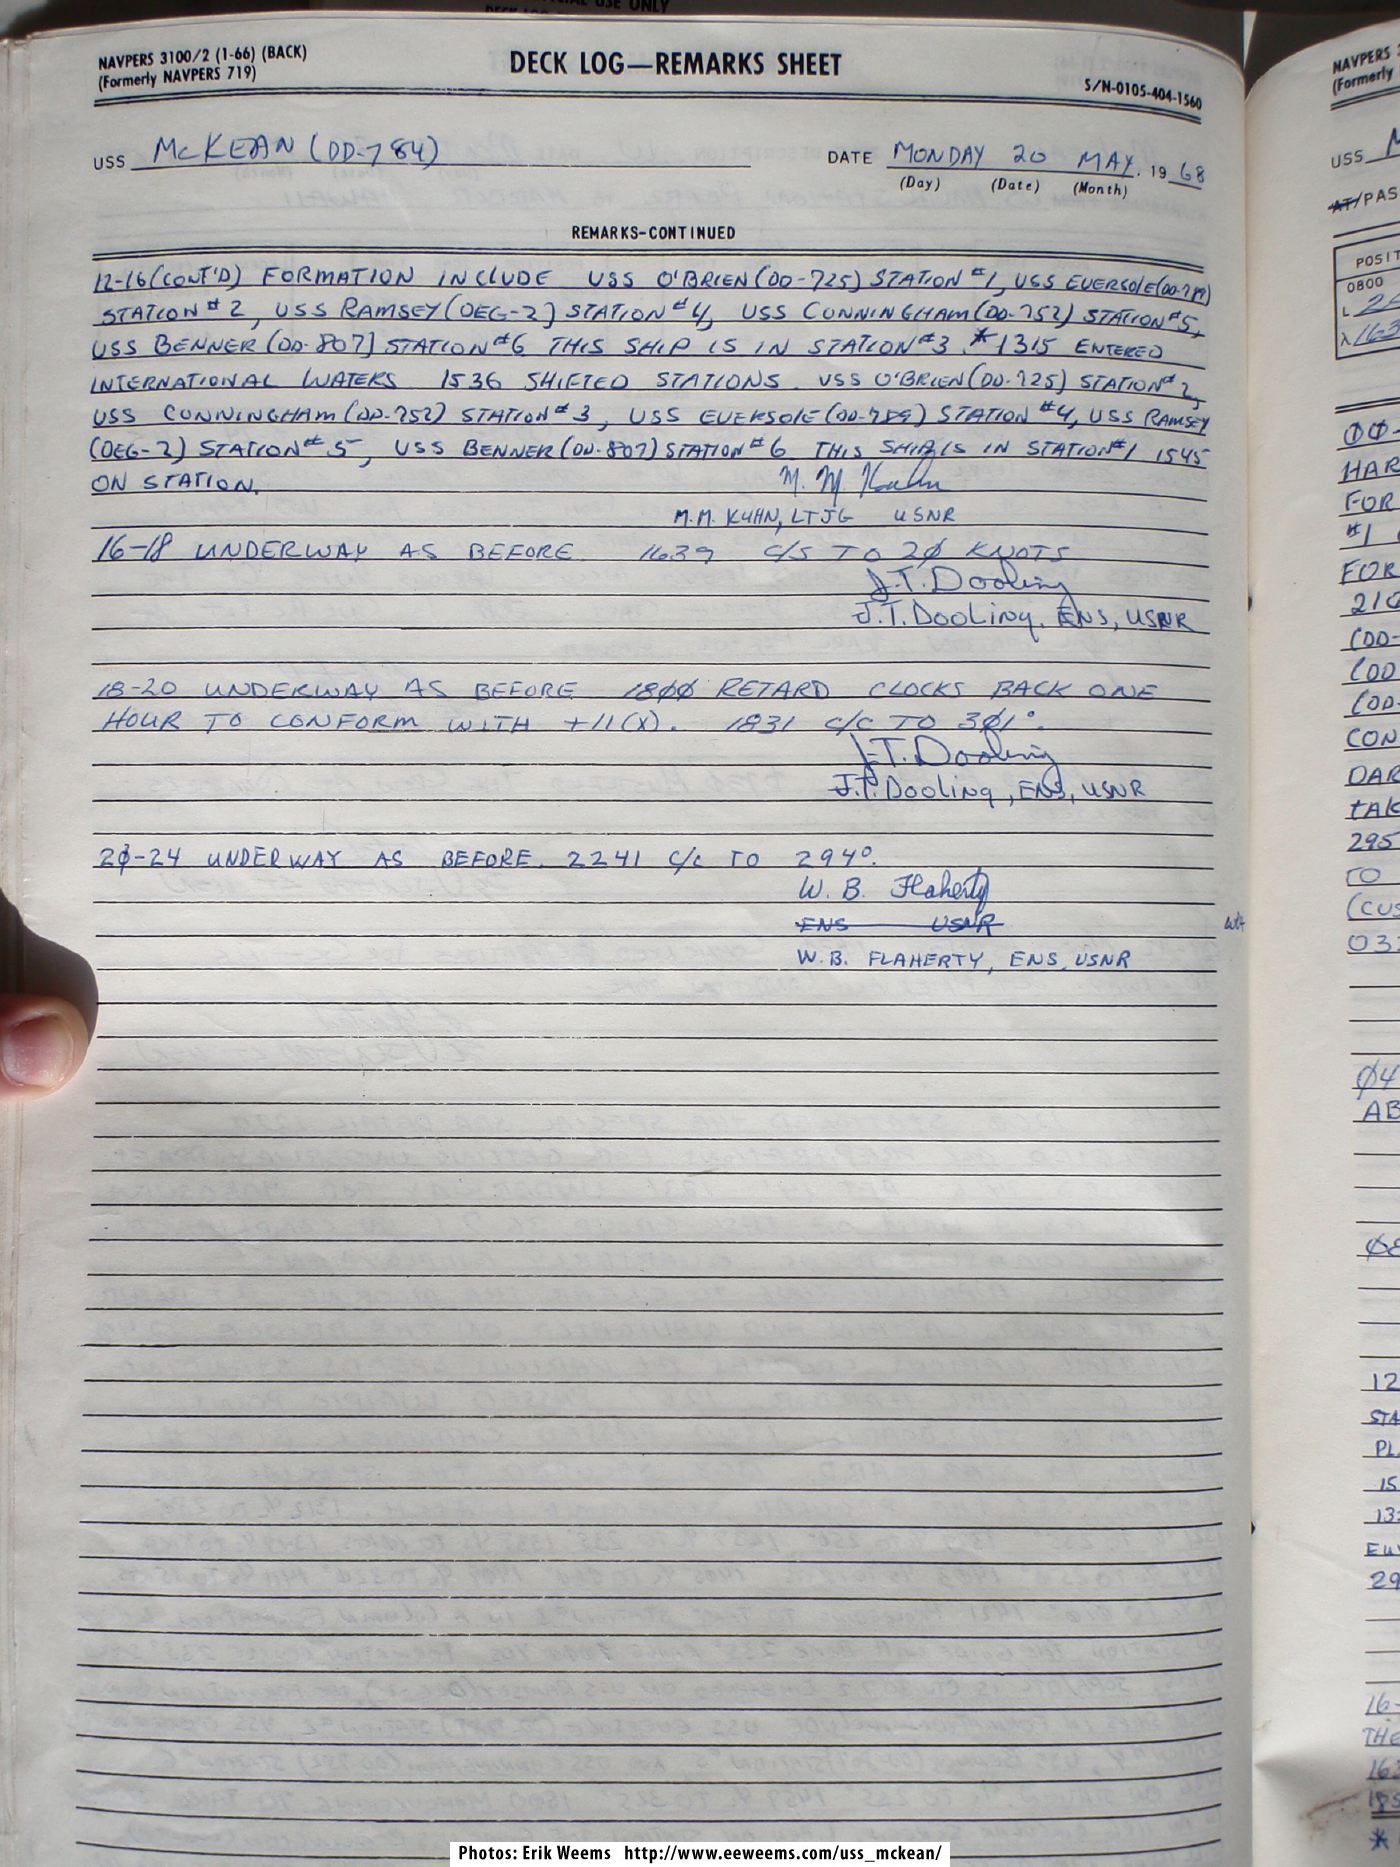 NAVPERS 3100/2 (1-66) (BACK)
(Formerly NAVPERS 719)
DECK LOG—REMARKS SHEET
S/N-0105-404-1560
USS McKEAN (DD-784)
DATE MONDAY 20 MAY. 19 68
(Day) (Date) (Month)
REMARKS-CONTINUED
12-16 (CONT'D) FORMATION INCLUDE USS O'BRIEN (DD-725) STATION #1, USS EVERSOLE (DD-789)
STATION #2, USS RAMSEY (DEG-2) STATION #4, USS CUNNINGHAM (DD-752) STATION #5,
USS BENNER (DD-807) STATION #6 THIS SHIP IS IN STATION #3. *1315 ENTERED
INTERNATIONAL WATERS 1536 SHIFTED STATIONS. USS O'BRIEN (DD-725) STATION #2,
USS CUNNINGHAM (DD-752) STATION #3, USS EVERSOLE (DD-789) STATION #4, USS RAMSEY
(DEG-2) STATION #5, USS BENNER (DD-807) STATION #6 THIS SHIP IS IN STATION #1 1545
ON STATION.
M. M. Kuhn
M.M. KUHN, LTJG USNR
16-18 UNDERWAY AS BEFORE 1639 C/S TO 2Ø KNOTS
J.T. Dooling
J.T. Dooling, ENS, USNR
18-20 UNDERWAY AS BEFORE 18ØØ RETARD CLOCKS BACK ONE
HOUR TO CONFORM WITH +11(X). 1831 C/C TO 3Ø1°.
J.T. Dooling
J.T. Dooling, ENS, USNR
2Ø-24 UNDERWAY AS BEFORE. 2241 C/C TO 294°.
W. B. Flaherty
ENS USNR
W.B. FLAHERTY, ENS, USNR
NAVPERS
(Formerly
USS M
AT/PAS
POSIT
0800
L
λ 163
ØØ-
HAR
FOR
#1
FOR
210
(DD-
(DD
(DD-
CON
DAR
TAK
295
TO
(CUS
03
Ø4
AB
Ø8
12
STA
PL
15
13
EW
29
16-
THE
163
185
*
Photos: Erik Weems http://www.eeweems.com/uss_mckean/